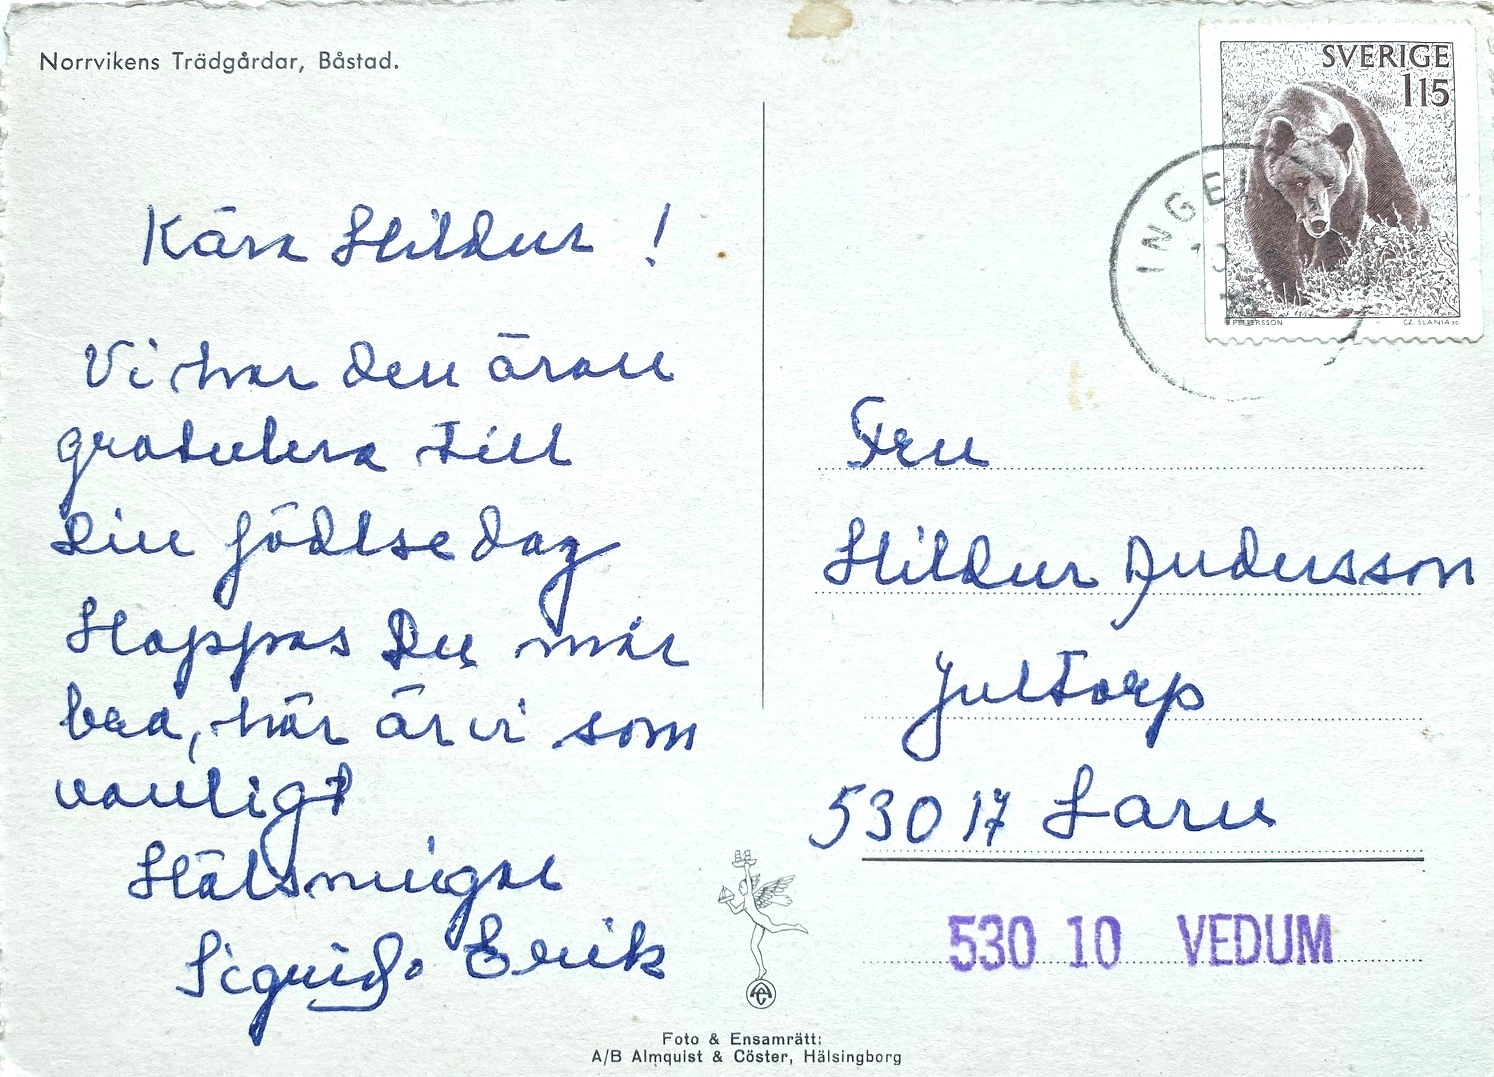 Norrvikens Trädgårdar, Båstad.
Kära Hildur !
Vi har den äran
gratulera till
Din födlsedag
Hoppas Du mår
bra, här är vi som
vanligt
Hälsningar
Sigrid o Erik
SVERIGE
1.15
CZ. SLANIA sc.
INGE
Fru
Hildur Andersson
Jultorp
530 17 Larv
530 10 VEDUM
Foto & Ensamrätt:
A/B Almquist & Cöster, Hälsingborg